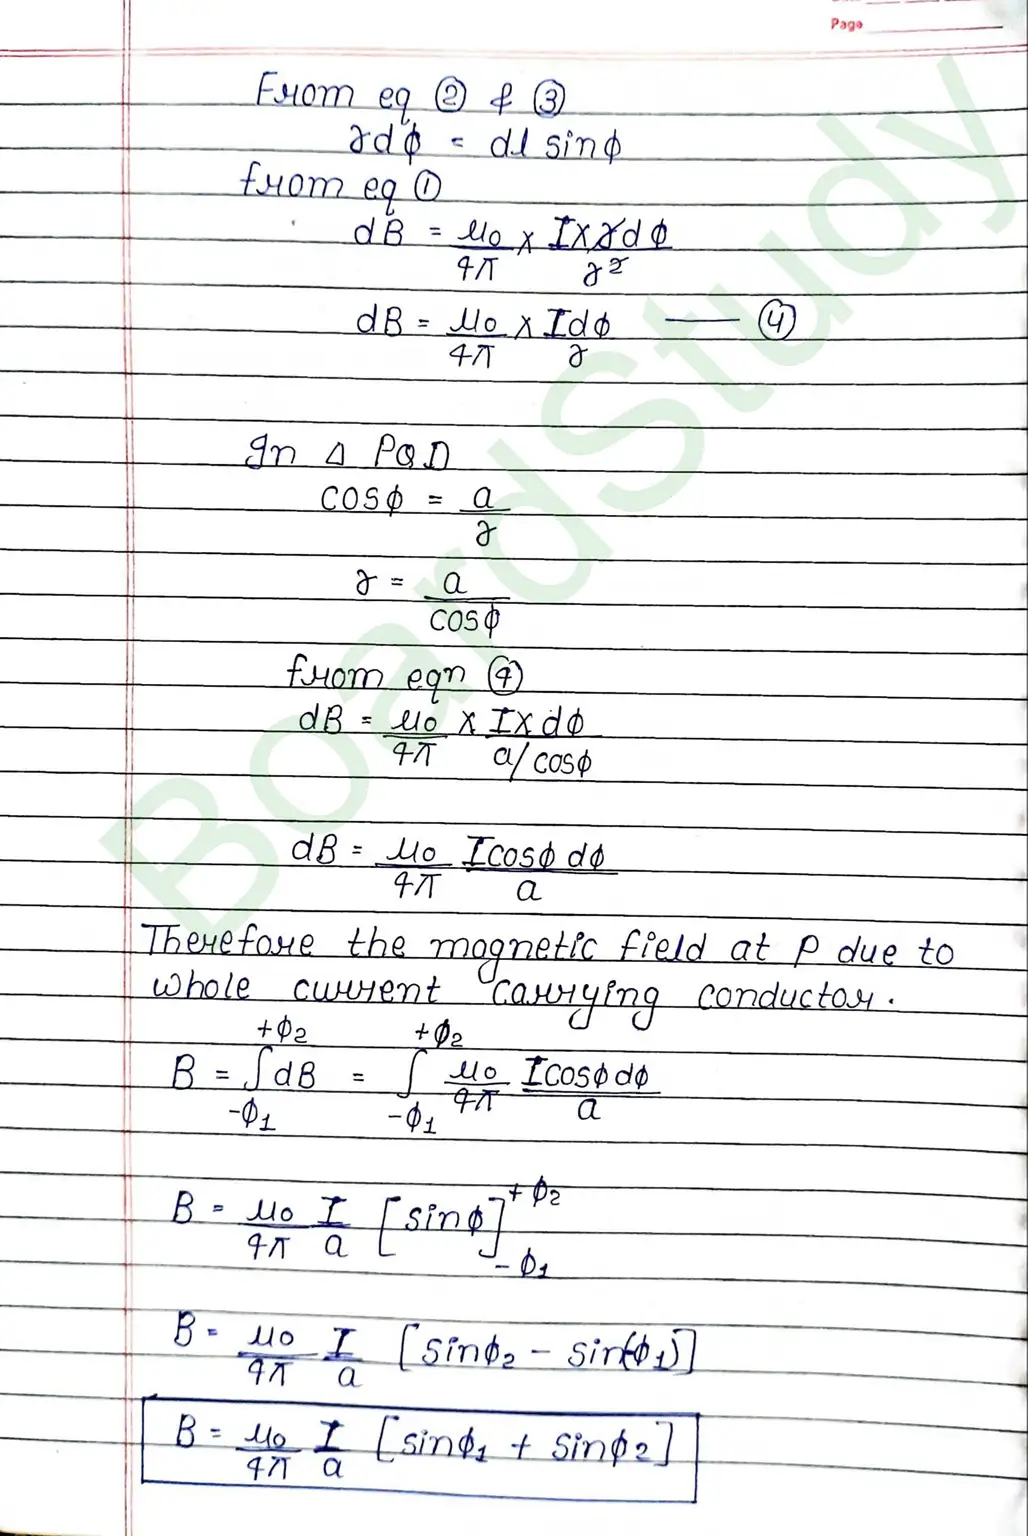 Page
From eq ② & ③
rdϕ = dl sinϕ
from eq ①
dB = μ0/4π × I×rdϕ/r²
dB = μ0/4π × Idϕ/r —— ④
In Δ PQD
cosϕ = a/r
r = a/cosϕ
from eqn ④
dB = μ0/4π × I×dϕ/a/cosϕ
dB = μ0/4π Icosϕ dϕ/a
Therefore the magnetic field at P due to
whole current carrying conductor.
B = ∫₋ϕ1^+ϕ2 dB = ∫₋ϕ1^+ϕ2 μ0/4π Icosϕdϕ/a
B = μ0/4π I/a [sinϕ]₋ϕ1^+ϕ2
B = μ0/4π I/a [sinϕ2 - sin(-ϕ1)]
B = μ0/4π I/a [sinϕ1 + sinϕ2]
BoardStudy